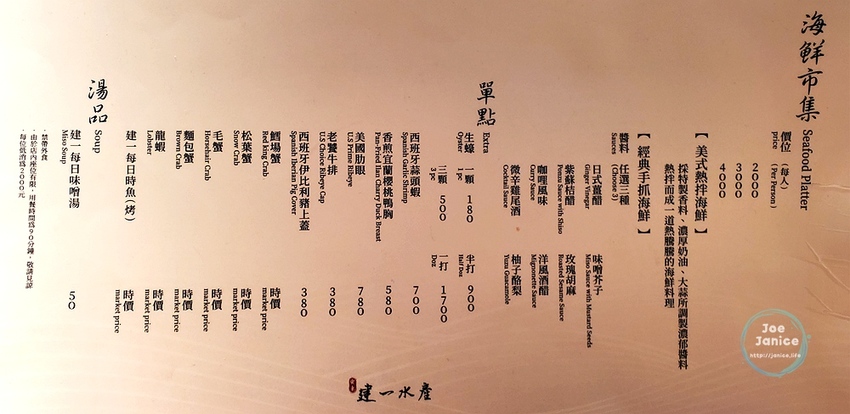 海鮮市集 Seafood Platter
價位（每人）
price （Per Person）
2000
3000
4000
【 美式熱拌海鮮 】
採特製香料、濃厚奶油、大蒜所調製濃郁醬料
熱拌而成一道熱騰騰的海鮮料理
【 經典手抓海鮮 】
醬料 任選三種
Sauces (Choose 3)
日式薑醋 味噌芥子
Ginger Vinegar Miso Sauce with Mustard Seeds
紫蘇桔醋 玫瑰胡麻
Ponzu Sauce with Shiso Roasted Sesame Sauce
咖哩風味 洋風酒醋
Curry Sauce Mignonette Sauce
微辛雞尾酒 柚子酪梨
Cocktail Sauce Yuzu Guacamole
單點 Extra
生蠔 一顆 180 半打 900
Oyster 1 pc Half Doz
三顆 500 一打 1700
3 pc Doz
西班牙蒜頭蝦 700
Spanish Garlic Shrimp
香煎宜蘭櫻桃鴨胸 580
Pan-Fried Ilan Cherry Duck Breast
美國肋眼 780
U.S Prime Ribeye
老饕牛排 380
U.S Choice Ribeye Cap
西班牙伊比利豬上蓋 380
Spanish Iberian Pig Cover
鱈場蟹 時價
Red king Crab market price
松葉蟹 時價
Snow Crab market price
毛蟹 時價
Horsehair Crab market price
麵包蟹 時價
Brown Crab market price
龍蝦 時價
Lobster market price
建一每日時魚(烤) 時價
market price
湯品 Soup
建一每日味噌湯 50
Miso Soup
．禁帶外食
．由於店內座位有限，用餐時間為90分鐘，敬請見諒
．每位低消為2000元
建一水產
Joe
Janice
http://janice.life